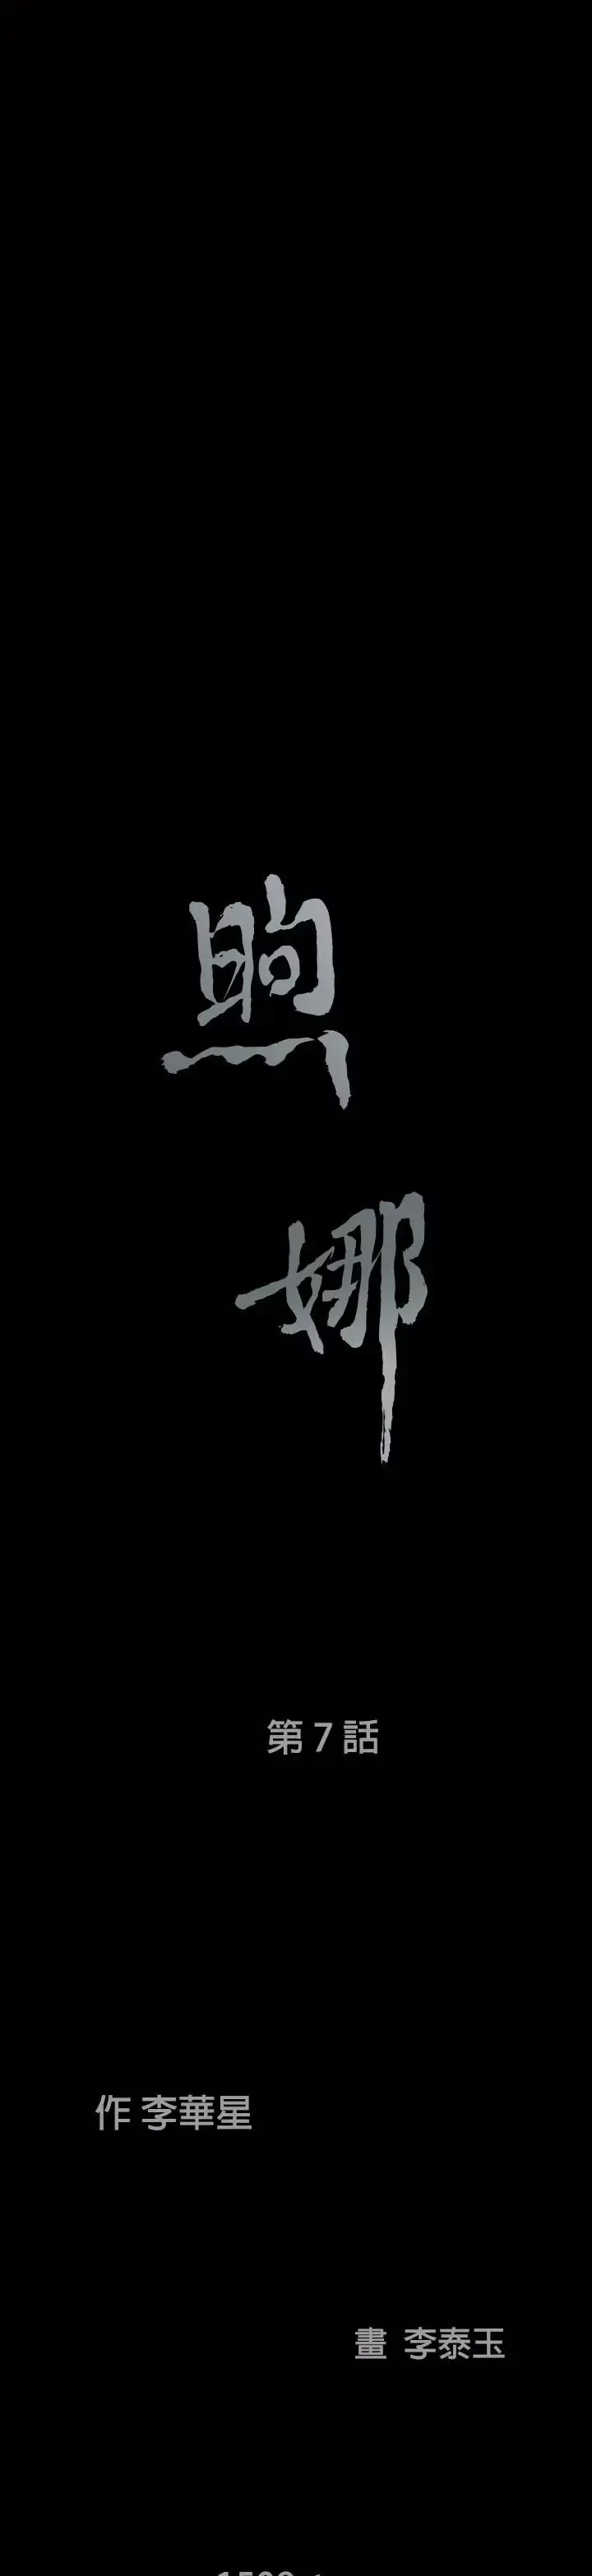 煦
娜
第7話
作 李華星
畫 李泰玉